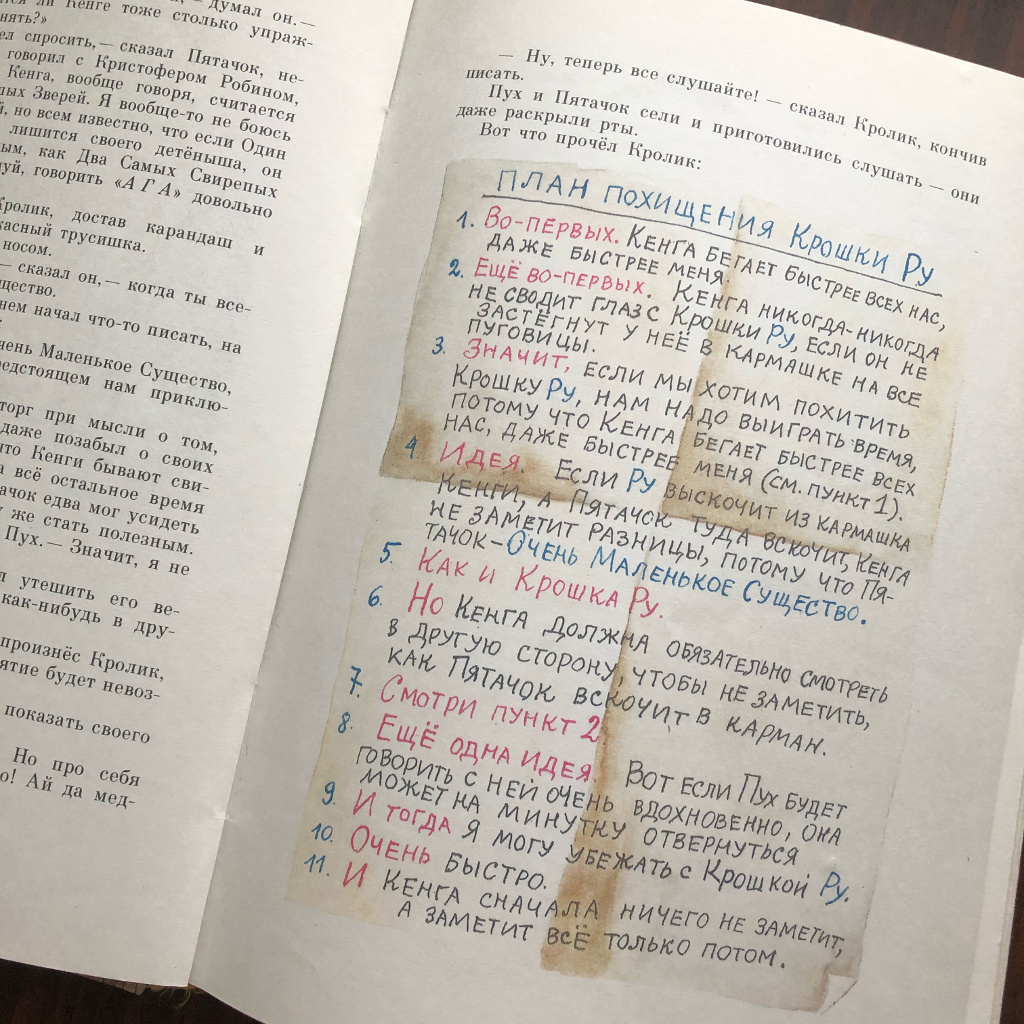 думал он.—
ли Кенге тоже столько упраж-
нять?»
спросить,— сказал Пятачок, не-
говорил с Кристофером Робином,
Кенга, вообще говоря, считается
Зверей. Я вообще-то не боюсь
но всем известно, что если Один
лишится своего детёныша, он
как Два Самых Свирепых
говорить «АГА» довольно
Кролик, достав карандаш и
трусишка.
носом.
— сказал он,— когда ты все-
начал что-то писать, на
Маленькое Существо,
предстоящем нам приклю-
при мысли о том,
даже позабыл о своих
что Кенги бывают сви-
всё остальное время
едва мог усидеть
же стать полезным.
Пух.— Значит, я не
утешить его ве-
как-нибудь в дру-
произнёс Кролик,
будет невоз-
показать своего
Но про себя
Ай да мед-
— Ну, теперь все слушайте! — сказал Кролик, кончив
писать.
Пух и Пятачок сели и приготовились слушать — они
даже раскрыли рты.
Вот что прочёл Кролик:
ПЛАН ПОХИЩЕНИЯ КРОШКИ РУ
1. ВО-ПЕРВЫХ. КЕНГА БЕГАЕТ БЫСТРЕЕ ВСЕХ НАС,
ДАЖЕ БЫСТРЕЕ МЕНЯ.
2. ЕЩЁ ВО-ПЕРВЫХ. КЕНГА НИКОГДА-НИКОГДА
НЕ СВОДИТ ГЛАЗ С КРОШКИ РУ, ЕСЛИ ОН НЕ
ЗАСТЁГНУТ У НЕЁ В КАРМАШКЕ НА ВСЕ
ПУГОВИЦЫ.
3. ЗНАЧИТ, ЕСЛИ МЫ ХОТИМ ПОХИТИТЬ
КРОШКУ РУ, НАМ НАДО ВЫИГРАТЬ ВРЕМЯ,
ПОТОМУ ЧТО КЕНГА БЕГАЕТ БЫСТРЕЕ ВСЕХ
НАС, ДАЖЕ БЫСТРЕЕ МЕНЯ (СМ. ПУНКТ 1).
4. ИДЕЯ. ЕСЛИ РУ ВЫСКОЧИТ ИЗ КАРМАШКА
КЕНГИ, А ПЯТАЧОК ТУДА ВСКОЧИТ, КЕНГА
НЕ ЗАМЕТИТ РАЗНИЦЫ, ПОТОМУ ЧТО ПЯ-
ТАЧОК–ОЧЕНЬ МАЛЕНЬКОЕ СУЩЕСТВО.
5. КАК И КРОШКА РУ.
6. НО КЕНГА ДОЛЖНА ОБЯЗАТЕЛЬНО СМОТРЕТЬ
В ДРУГУЮ СТОРОНУ, ЧТОБЫ НЕ ЗАМЕТИТЬ,
КАК ПЯТАЧОК ВСКОЧИТ В КАРМАН.
7. СМОТРИ ПУНКТ 2
8. ЕЩЁ ОДНА ИДЕЯ. ВОТ ЕСЛИ ПУХ БУДЕТ
ГОВОРИТЬ С НЕЙ ОЧЕНЬ ВДОХНОВЕННО, ОНА
МОЖЕТ НА МИНУТКУ ОТВЕРНУТЬСЯ
9. И ТОГДА Я МОГУ УБЕЖАТЬ С КРОШКОЙ РУ.
10. ОЧЕНЬ БЫСТРО.
11. И КЕНГА СНАЧАЛА НИЧЕГО НЕ ЗАМЕТИТ,
А ЗАМЕТИТ ВСЁ ТОЛЬКО ПОТОМ.